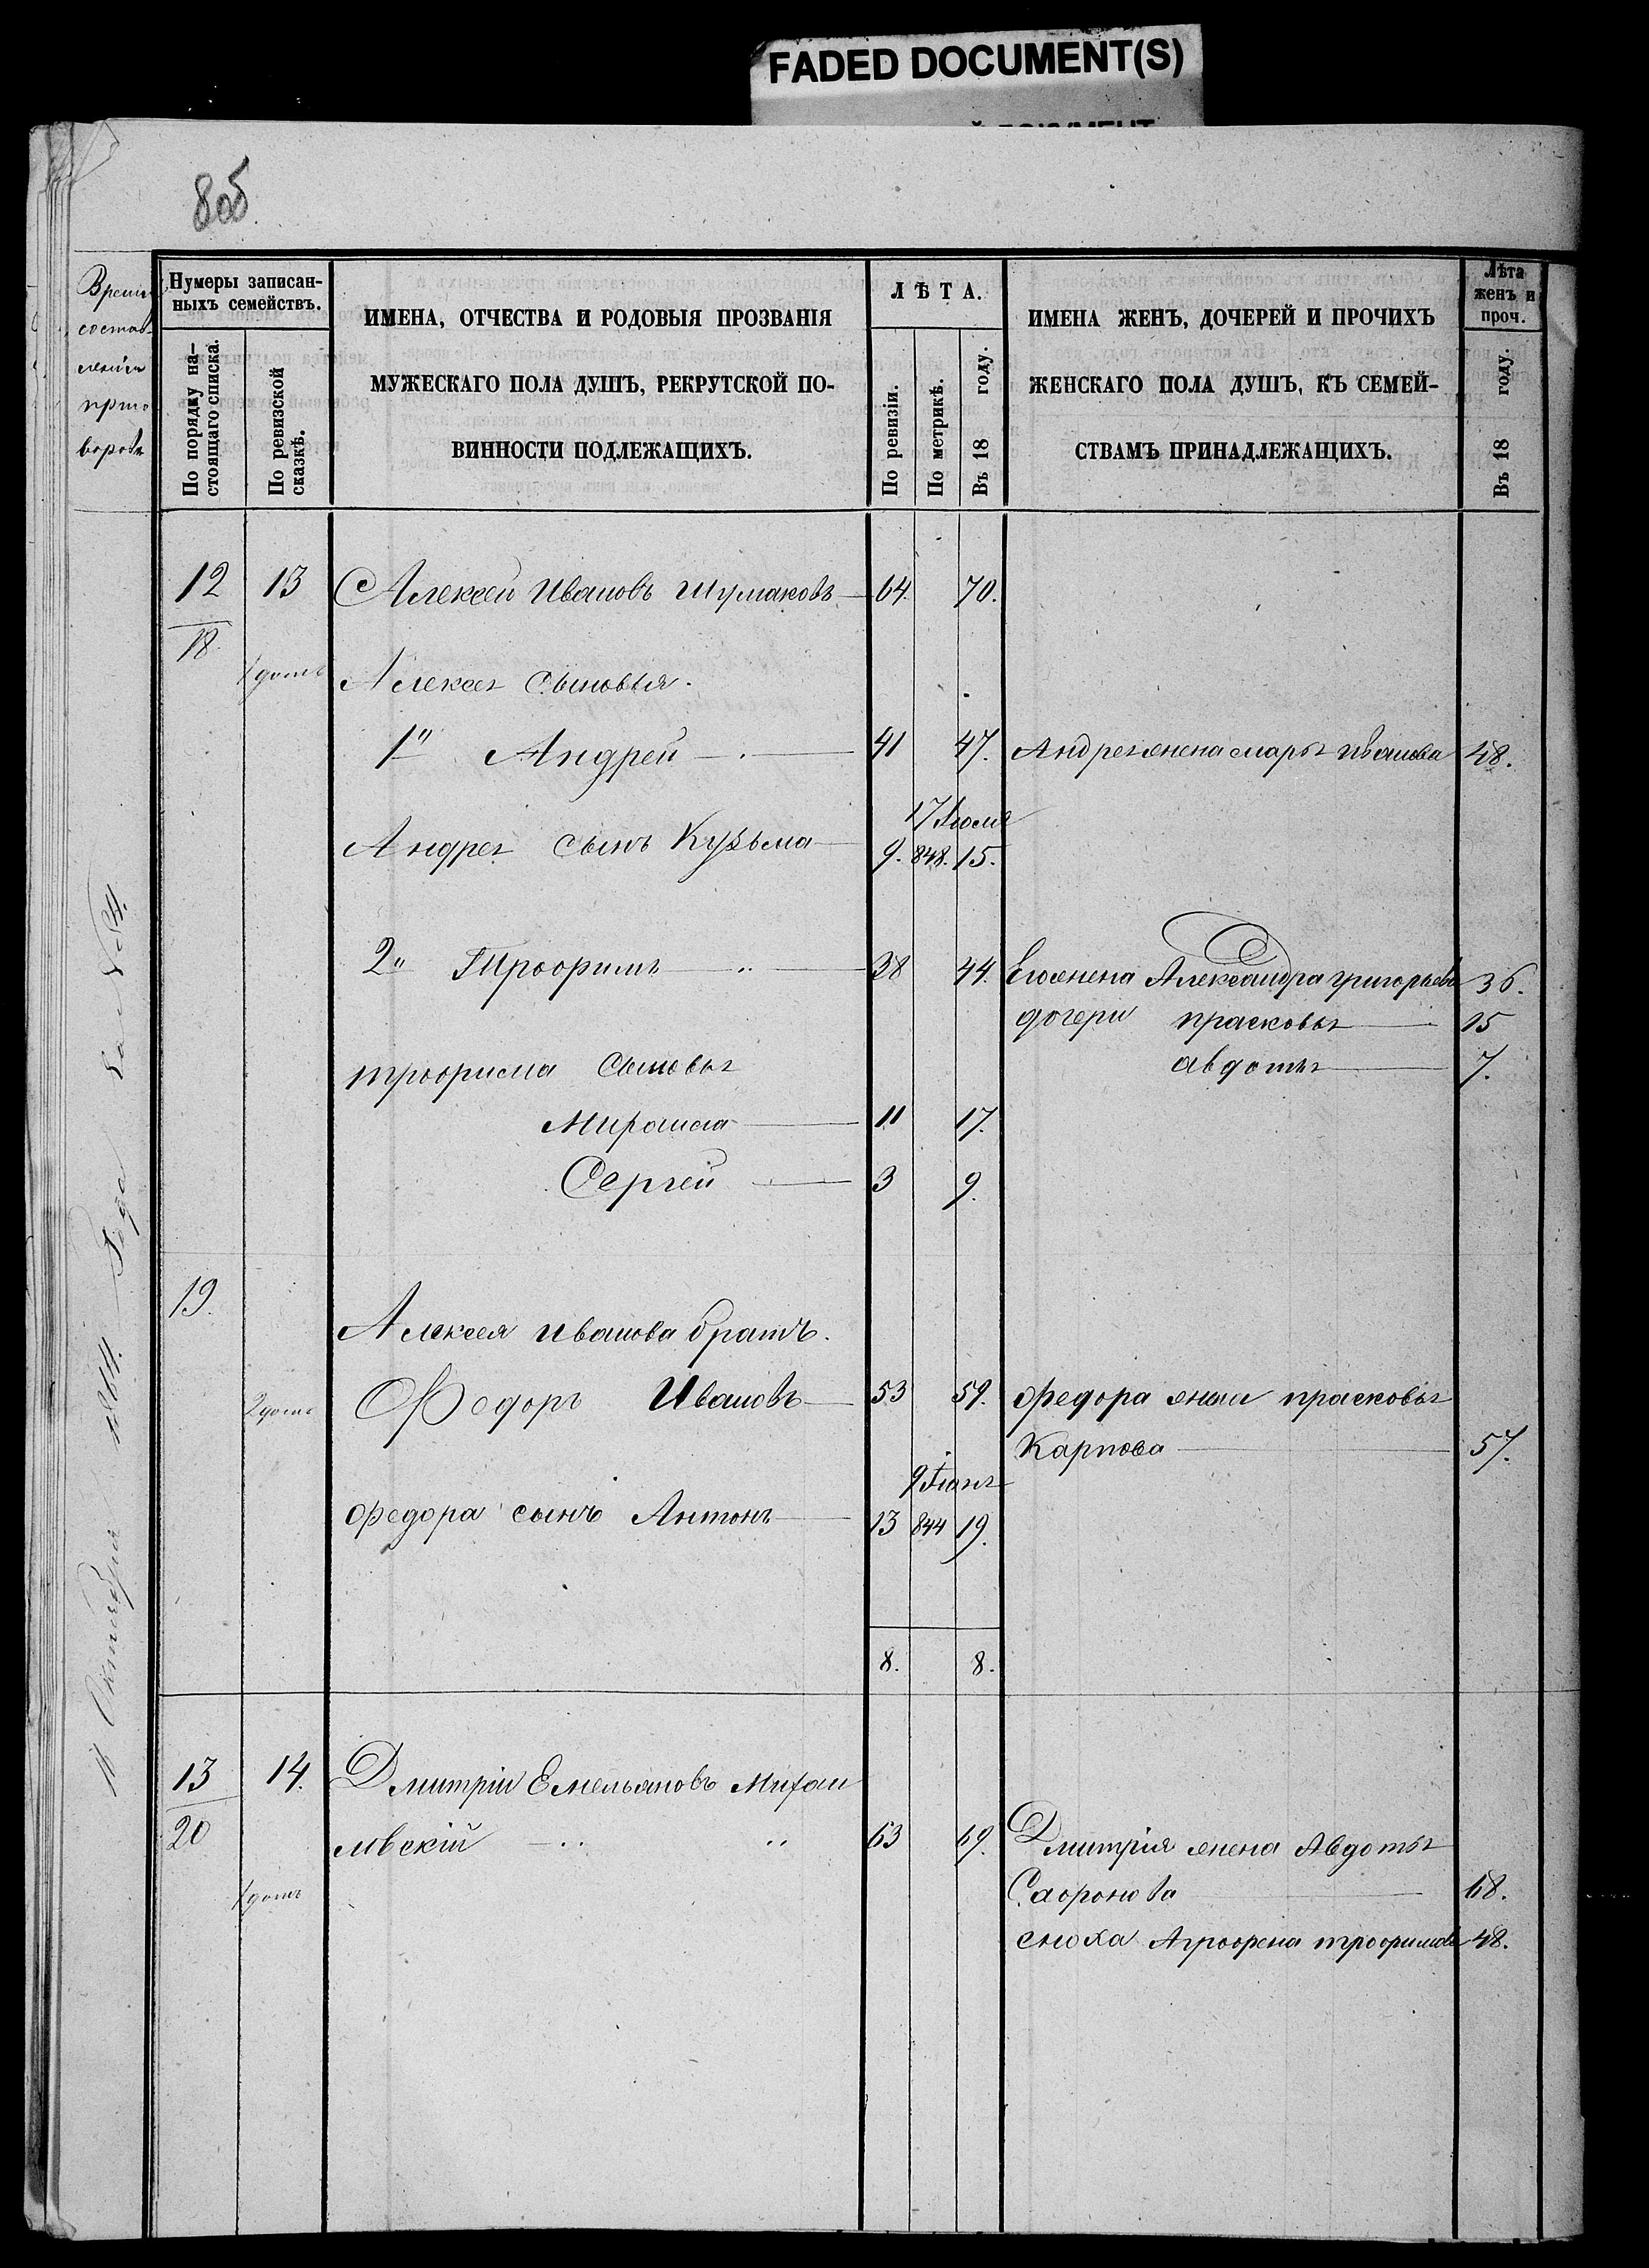 FADED DOCUMENT(S)
8об.
Время
состав
ленія
приго
вора
Нумеры записан-
ныхъ семействъ.
По порядку на-
стоящаго списка.
По ревизской
сказкѣ.
ИМЕНА, ОТЧЕСТВА И РОДОВЫЯ ПРОЗВАНІЯ
МУЖЕСКАГО ПОЛА ДУШЪ, РЕКРУТСКОЙ ПО-
ВИННОСТИ ПОДЛЕЖАЩИХЪ.
ЛѢТА.
По ревизіи.
По метрикѣ.
Въ 18 году.
ИМЕНА ЖЕНЪ, ДОЧЕРЕЙ И ПРОЧИХЪ
ЖЕНСКАГО ПОЛА ДУШЪ, КЪ СЕМЕЙ-
СТВАМЪ ПРИНАДЛЕЖАЩИХЪ.
Лѣта
женъ и
проч.
Въ 18 году.
12 13 Алексей Ивановъ Шумаковъ 64 70.
18
1 домъ Алексея сыновья.
1" Андрей 41 47. Андрея жена Марья Иванова 48.
17 Іюля
Андрея сынъ Кузьма 9. 848. 15.
2" Трофимъ 38 44. Его жена Александра Григорьева 36.
дочери Прасковья 15
Трофима сыновья Авдотья 7.
Мирон 11 17.
Сергей 3 9.
19.
Алексея Иванова братъ.
2 домъ Федоръ Ивановъ 53 59. Федора жена Прасковья
Карпова 57.
9 Генв
Федора сынъ Антонъ 13 844 19.
8. 8.
13 14. Дмитрій Емельяновъ Михаи
20 ловскій 63 69. Дмитрія жена Авдотья
1 домъ Сафронова 68.
сноха Агрофена Трофимова 48.
Октября 1864. Года